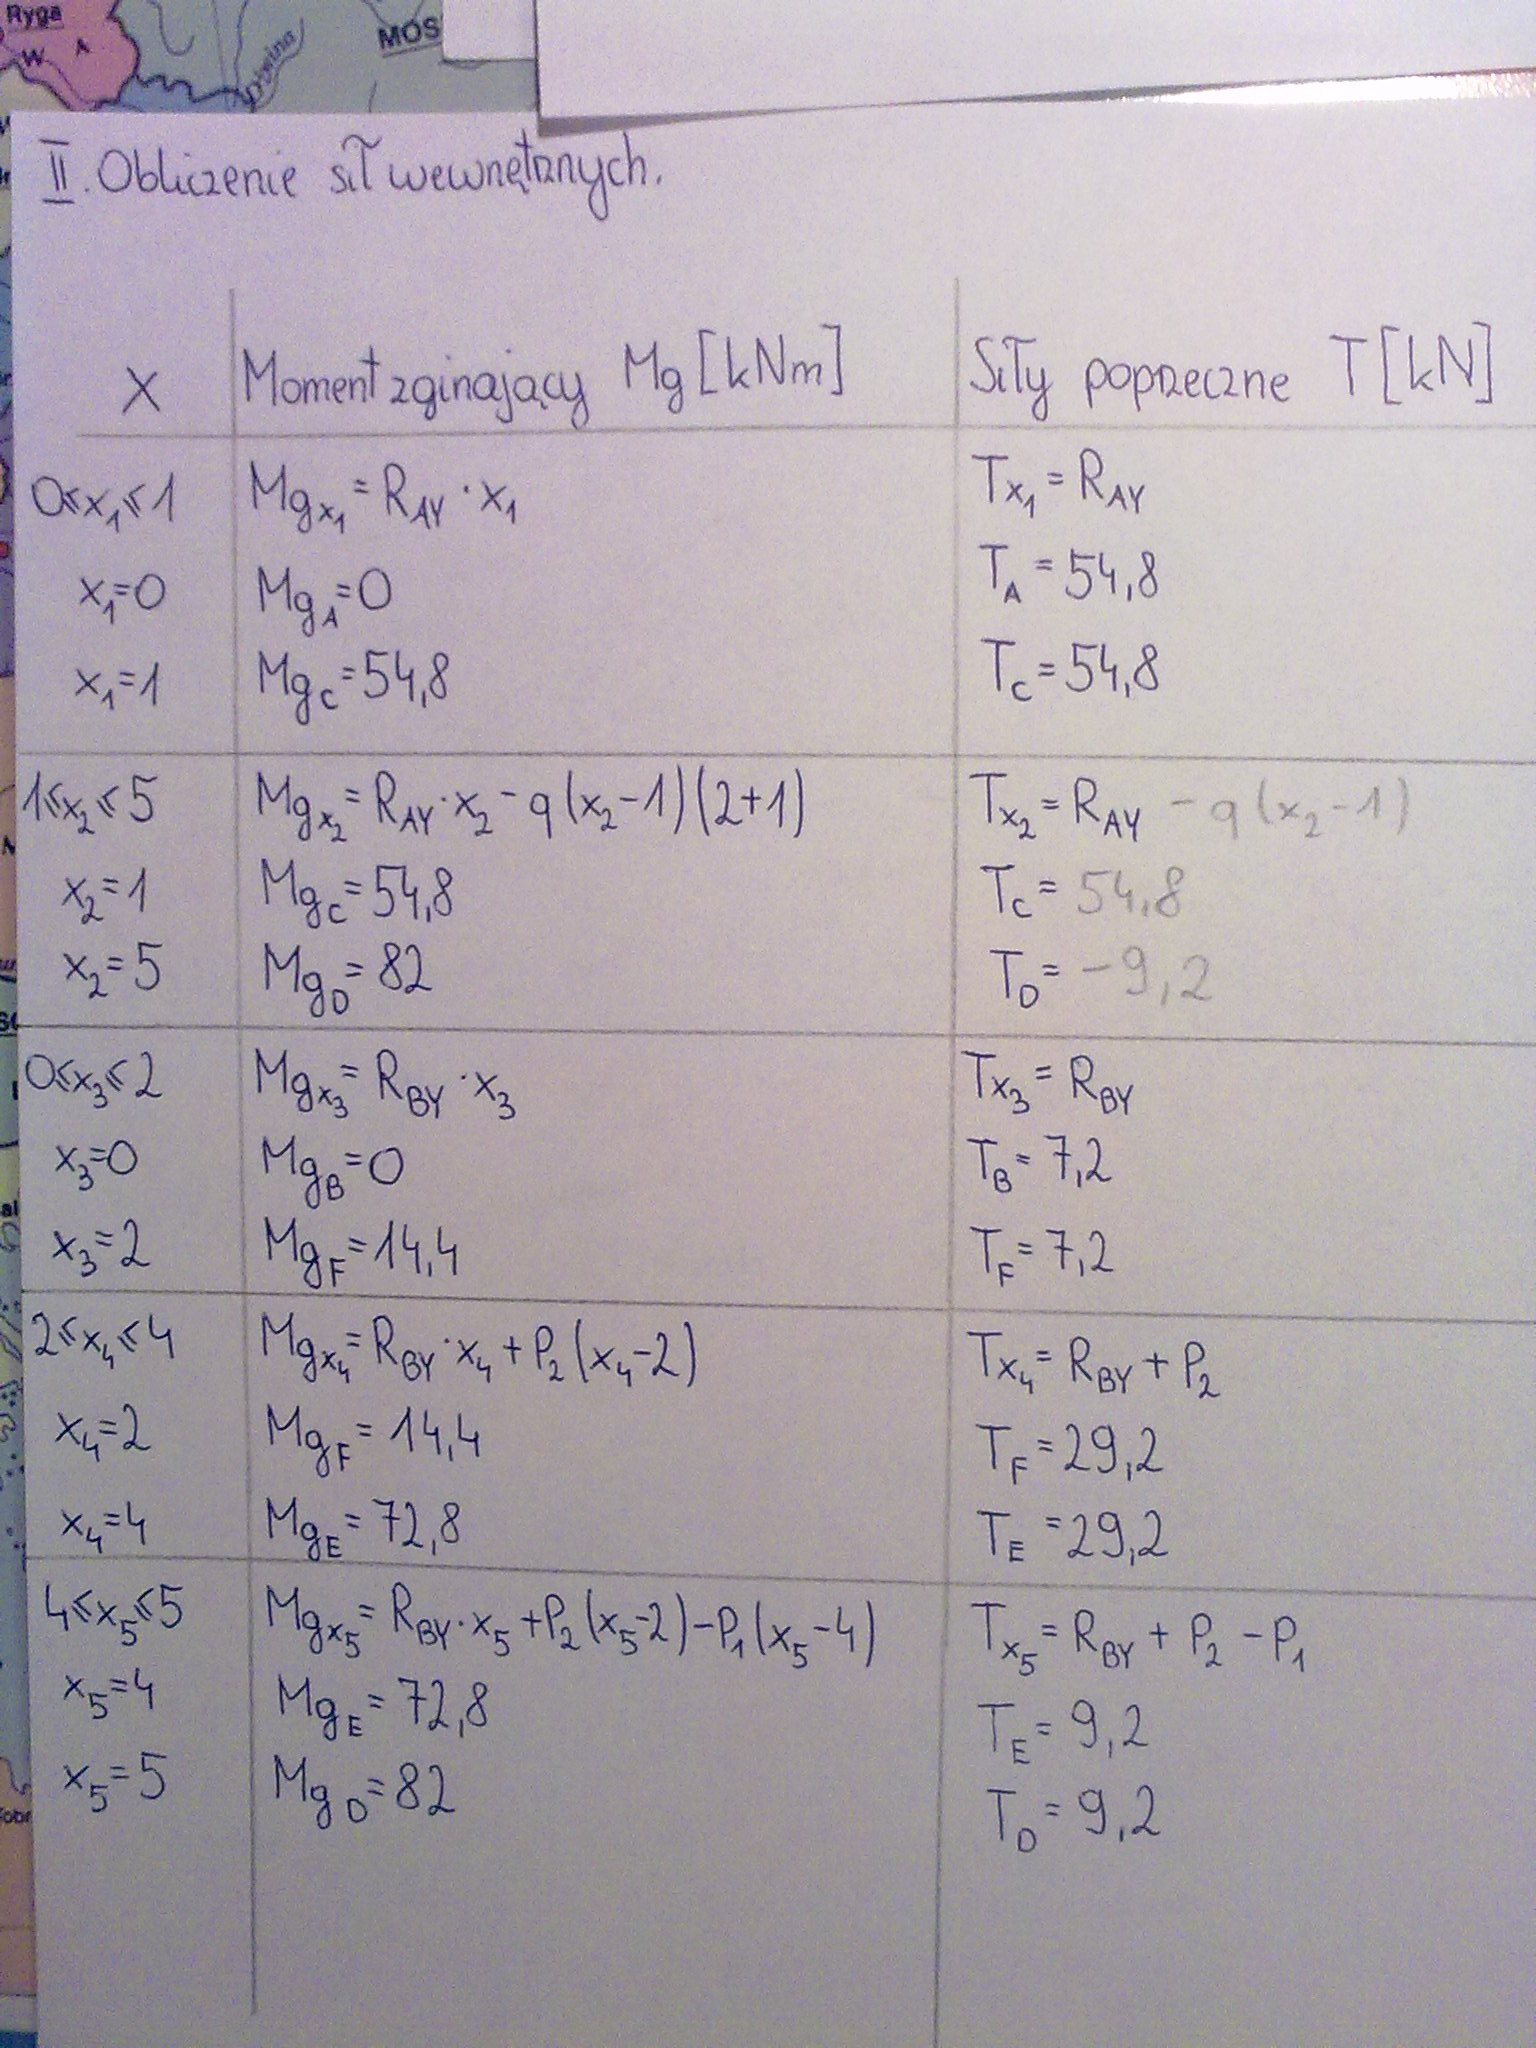 Ryga
W A
Dźwina
MOS
II. Obliczenie sił wewnętrznych.
X Moment zginający Mg [kNm] Siły poprzeczne T [kN]
0≤x₁≤1 Mgx₁ = R_AY · x₁ Tx₁ = R_AY
x₁=0 Mg_A=0 T_A = 54,8
x₁=1 Mg_C=54,8 T_C = 54,8
1≤x₂≤5 Mgx₂ = R_AY·x₂ - q(x₂-1)(2+1) Tx₂ = R_AY - q(x₂-1)
x₂=1 Mg_C=54,8 T_C = 54,8
x₂=5 Mg_D=82 T_D = -9,2
0≤x₃≤2 Mgx₃ = R_BY · x₃ Tx₃ = R_BY
x₃=0 Mg_B=0 T_B = 7,2
x₃=2 Mg_F=14,4 T_F = 7,2
2≤x₄≤4 Mgx₄ = R_BY·x₄ + P₂(x₄-2) Tx₄ = R_BY + P₂
x₄=2 Mg_F = 14,4 T_F = 29,2
x₄=4 Mg_E = 72,8 T_E = 29,2
4≤x₅≤5 Mgx₅ = R_BY·x₅ + P₂(x₅-2) - P₁(x₅-4) Tx₅ = R_BY + P₂ - P₁
x₅=4 Mg_E = 72,8 T_E = 9,2
x₅=5 Mg_D = 82 T_D = 9,2